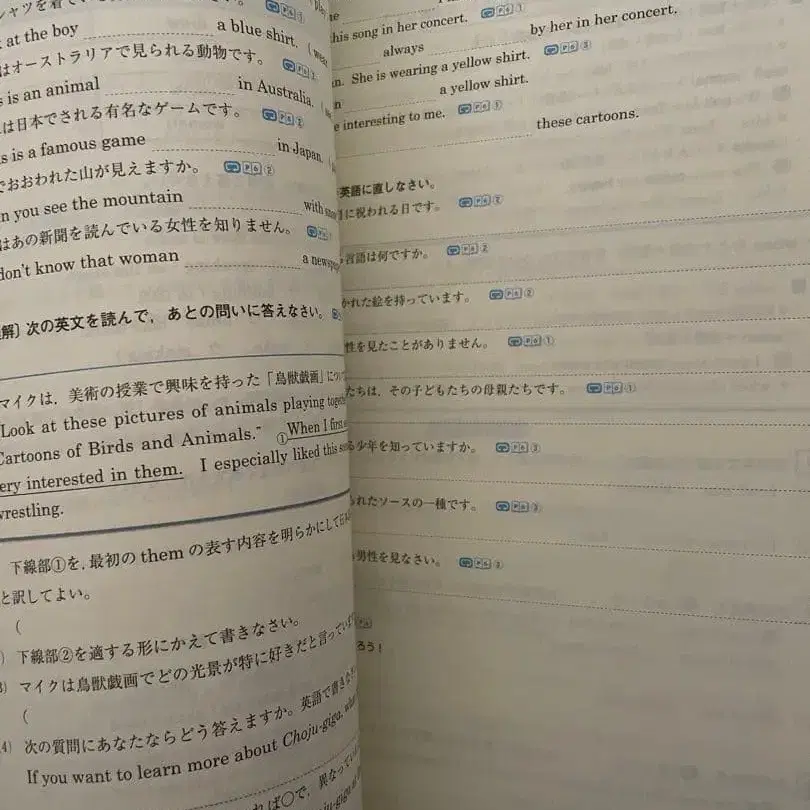 シャツを着て
at the boy ______ a blue shirt. (
はオーストラリアで見られる動物です。 P6
is an animal ______ in Australia. (
は日本でされる有名なゲームです。 P6 ②
is a famous game ______ in Japan. (
でおおわれた山が見えますか。 P6 ②
you see the mountain ______ with
はあの新聞を読んでいる女性を知りません。 P6
don't know that woman ______ a
解〕次の英文を読んで，あとの問いに答えなさい。
マイクは，美術の授業で興味を持った「鳥獣戯画」について
Look at these pictures of animals playing
Cartoons of Birds and Animals." ①When I first
very interested in them. I especially liked this
wrestling.
下線部①を，最初の them の表す内容を明らかにして
と訳してよい。
(
) 下線部②を適する形にかえて書きなさい。
3) マイクは鳥獣戯画でどの光景が特に好きだと言っています
(
4) 次の質問にあなたならどう答えますか。英語で書きなさ
If you want to learn more about Choju-giga,
れば○で，異なってい
this song in her concert. P6 ①
______ always ______ by her in her concert.
She is wearing a yellow shirt. P6
______ a yellow shirt.
interesting to me. P6 ①
______ these cartoons.
英語に直しなさい。
に祝われる日です。 P6 ②
言語は何ですか。 P6 ②
かれた絵を持っています。 P6 ②
性を見たことがありません。 P6 ①
たちは，その子どもたちの母親たちです。 P6 ①
る少年を知っていますか。 P6
られたソースの一種です。 P6
男性を見なさい。 P6
ろう！